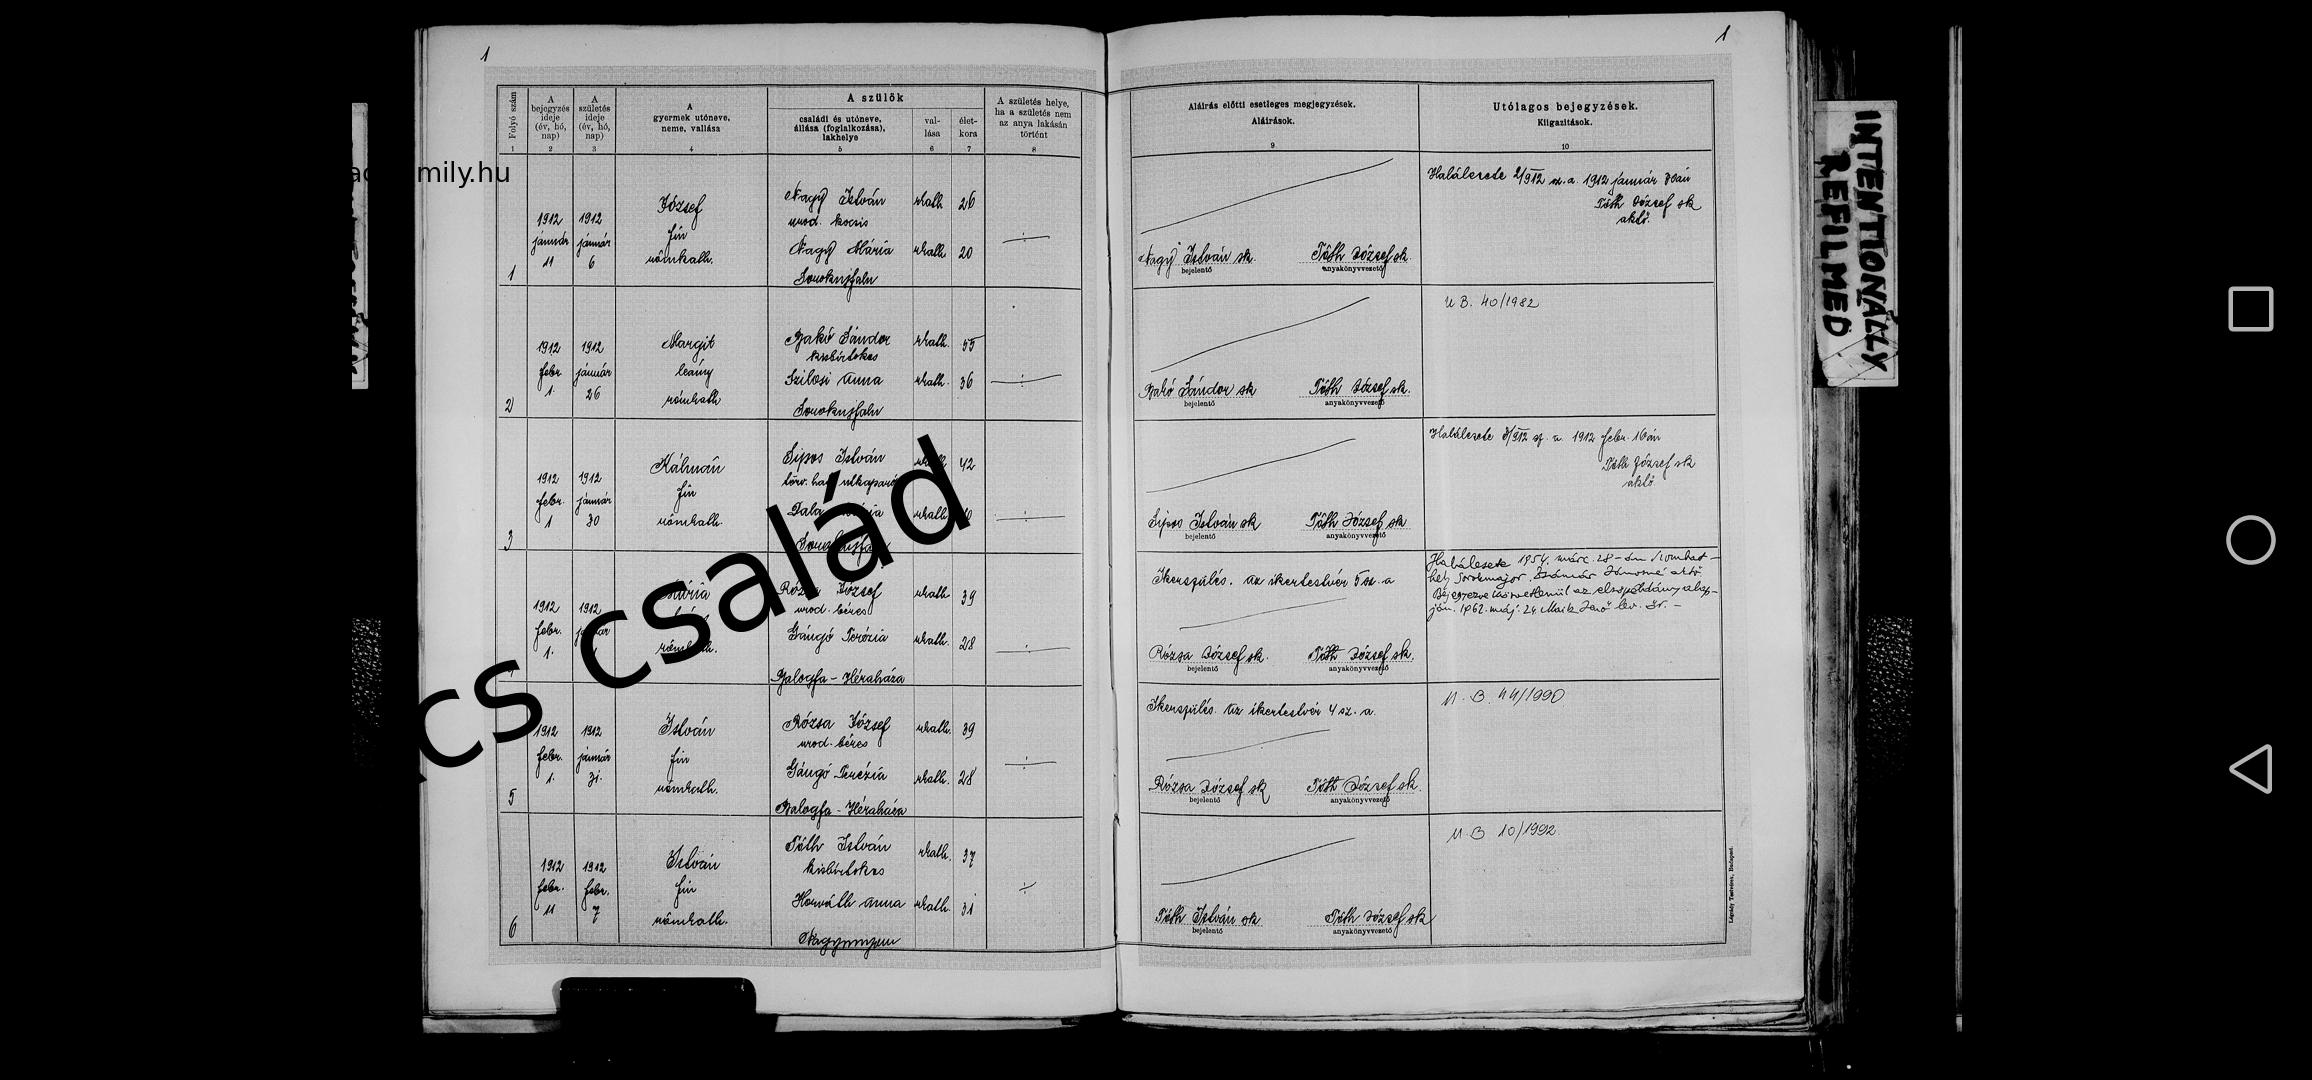 1
1
A szülők
Folyó szám
A bejegyzés ideje (év, hó, nap)
A születés ideje (év, hó, nap)
A gyermek utóneve, neme, vallása
családi és utóneve, állása (foglalkozása), lakhelye
val-lása
élet-kora
A születés helye, ha a születés nem az anya lakásán történt
Aláírás előtti esetleges megjegyzések.
Aláírások.
Utólagos bejegyzések.
Kiigazítások.
1 2 3 4 5 6 7 8 9 10
mily.hu
1
1912 január 11
1912 január 6
József
fiu
rómkath.
Nagy István rkath. 26
urod. kocsis
Nagy Mária rkath. 20
Nagy István sk. Tóth József sk
bejelentő anyakönyvvezető
Halálesete 2/912 sz. a. 1912 január
Tóth József sk
aktő.
2
1912 febr. 1.
1912 január 26
Margit
leány
rómkath
Bakó Sándor rkath. 55
kisbirtokos
Szilasi Anna rkath. 36
Bakó Sándor sk Tóth József sk.
bejelentő anyakönyvvezető
U B. 40/1982
3
1912 febr. 1
1912 január 30
Kálmán
fiu
rómkath.
Sipos István 42
törv. hat. utkaparó
rkath.
Sipos István sk Tóth József sk
bejelentő anyakönyvvezető
Halálesete 3/912 sz. a. 1912 febr. 16án
Tóth József sk
aktő.
1912 febr. 1.
1912
Mária
Rózsa József rkath. 39
urod. béres
Gángó Terézia rkath. 28
Balogfa - Héraháza
Ikerszülés. Az ikertestvér 5 sz. a
Rózsa József sk. Tóth József sk.
bejelentő anyakönyvvezető
Halálesete 1954. márc. 28-án Szombat-
hely
ján. 1962. máj. 24
5
1912 febr. 1.
1912 január 31.
István
fiu
rómkath.
Rózsa József rkath. 39
urod. béres
Gángó Terézia rkath. 28
Balogfa - Héraháza
Ikerszülés. Az ikertestvér 4 sz. a.
Rózsa József sk Tóth József sk.
bejelentő anyakönyvvezető
U. B. 44/1990
6
1912 febr. 11
1912 febr. 7
István
fiu
rómkath.
Tóth István rkath. 37
kisbirtokos
Horváth Anna rkath. 31
Tóth István sk Tóth József sk
bejelentő anyakönyvvezető
U. B 10/1992
Légrády Testvérek, Budapest.
cs család
INTENTIONALLY
REFILMED